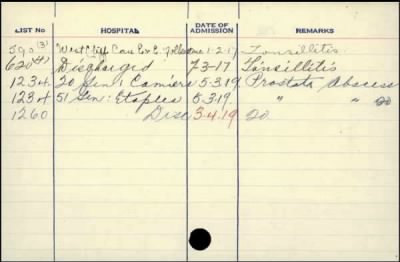 LIST NO HOSPITAL DATE OF ADMISSION REMARKS
590 (3) West Cliff Can E & E. Folkestone 1-2-17 Tonsillitis
620 Discharged 7-3-17 Tonsillitis
1234 20 Gen: Camiers 5.3.19 Prostate Abscess
1234 51 Gen: Etaples 5.3.19 " " do
1260 Disc 3-4-19 do.